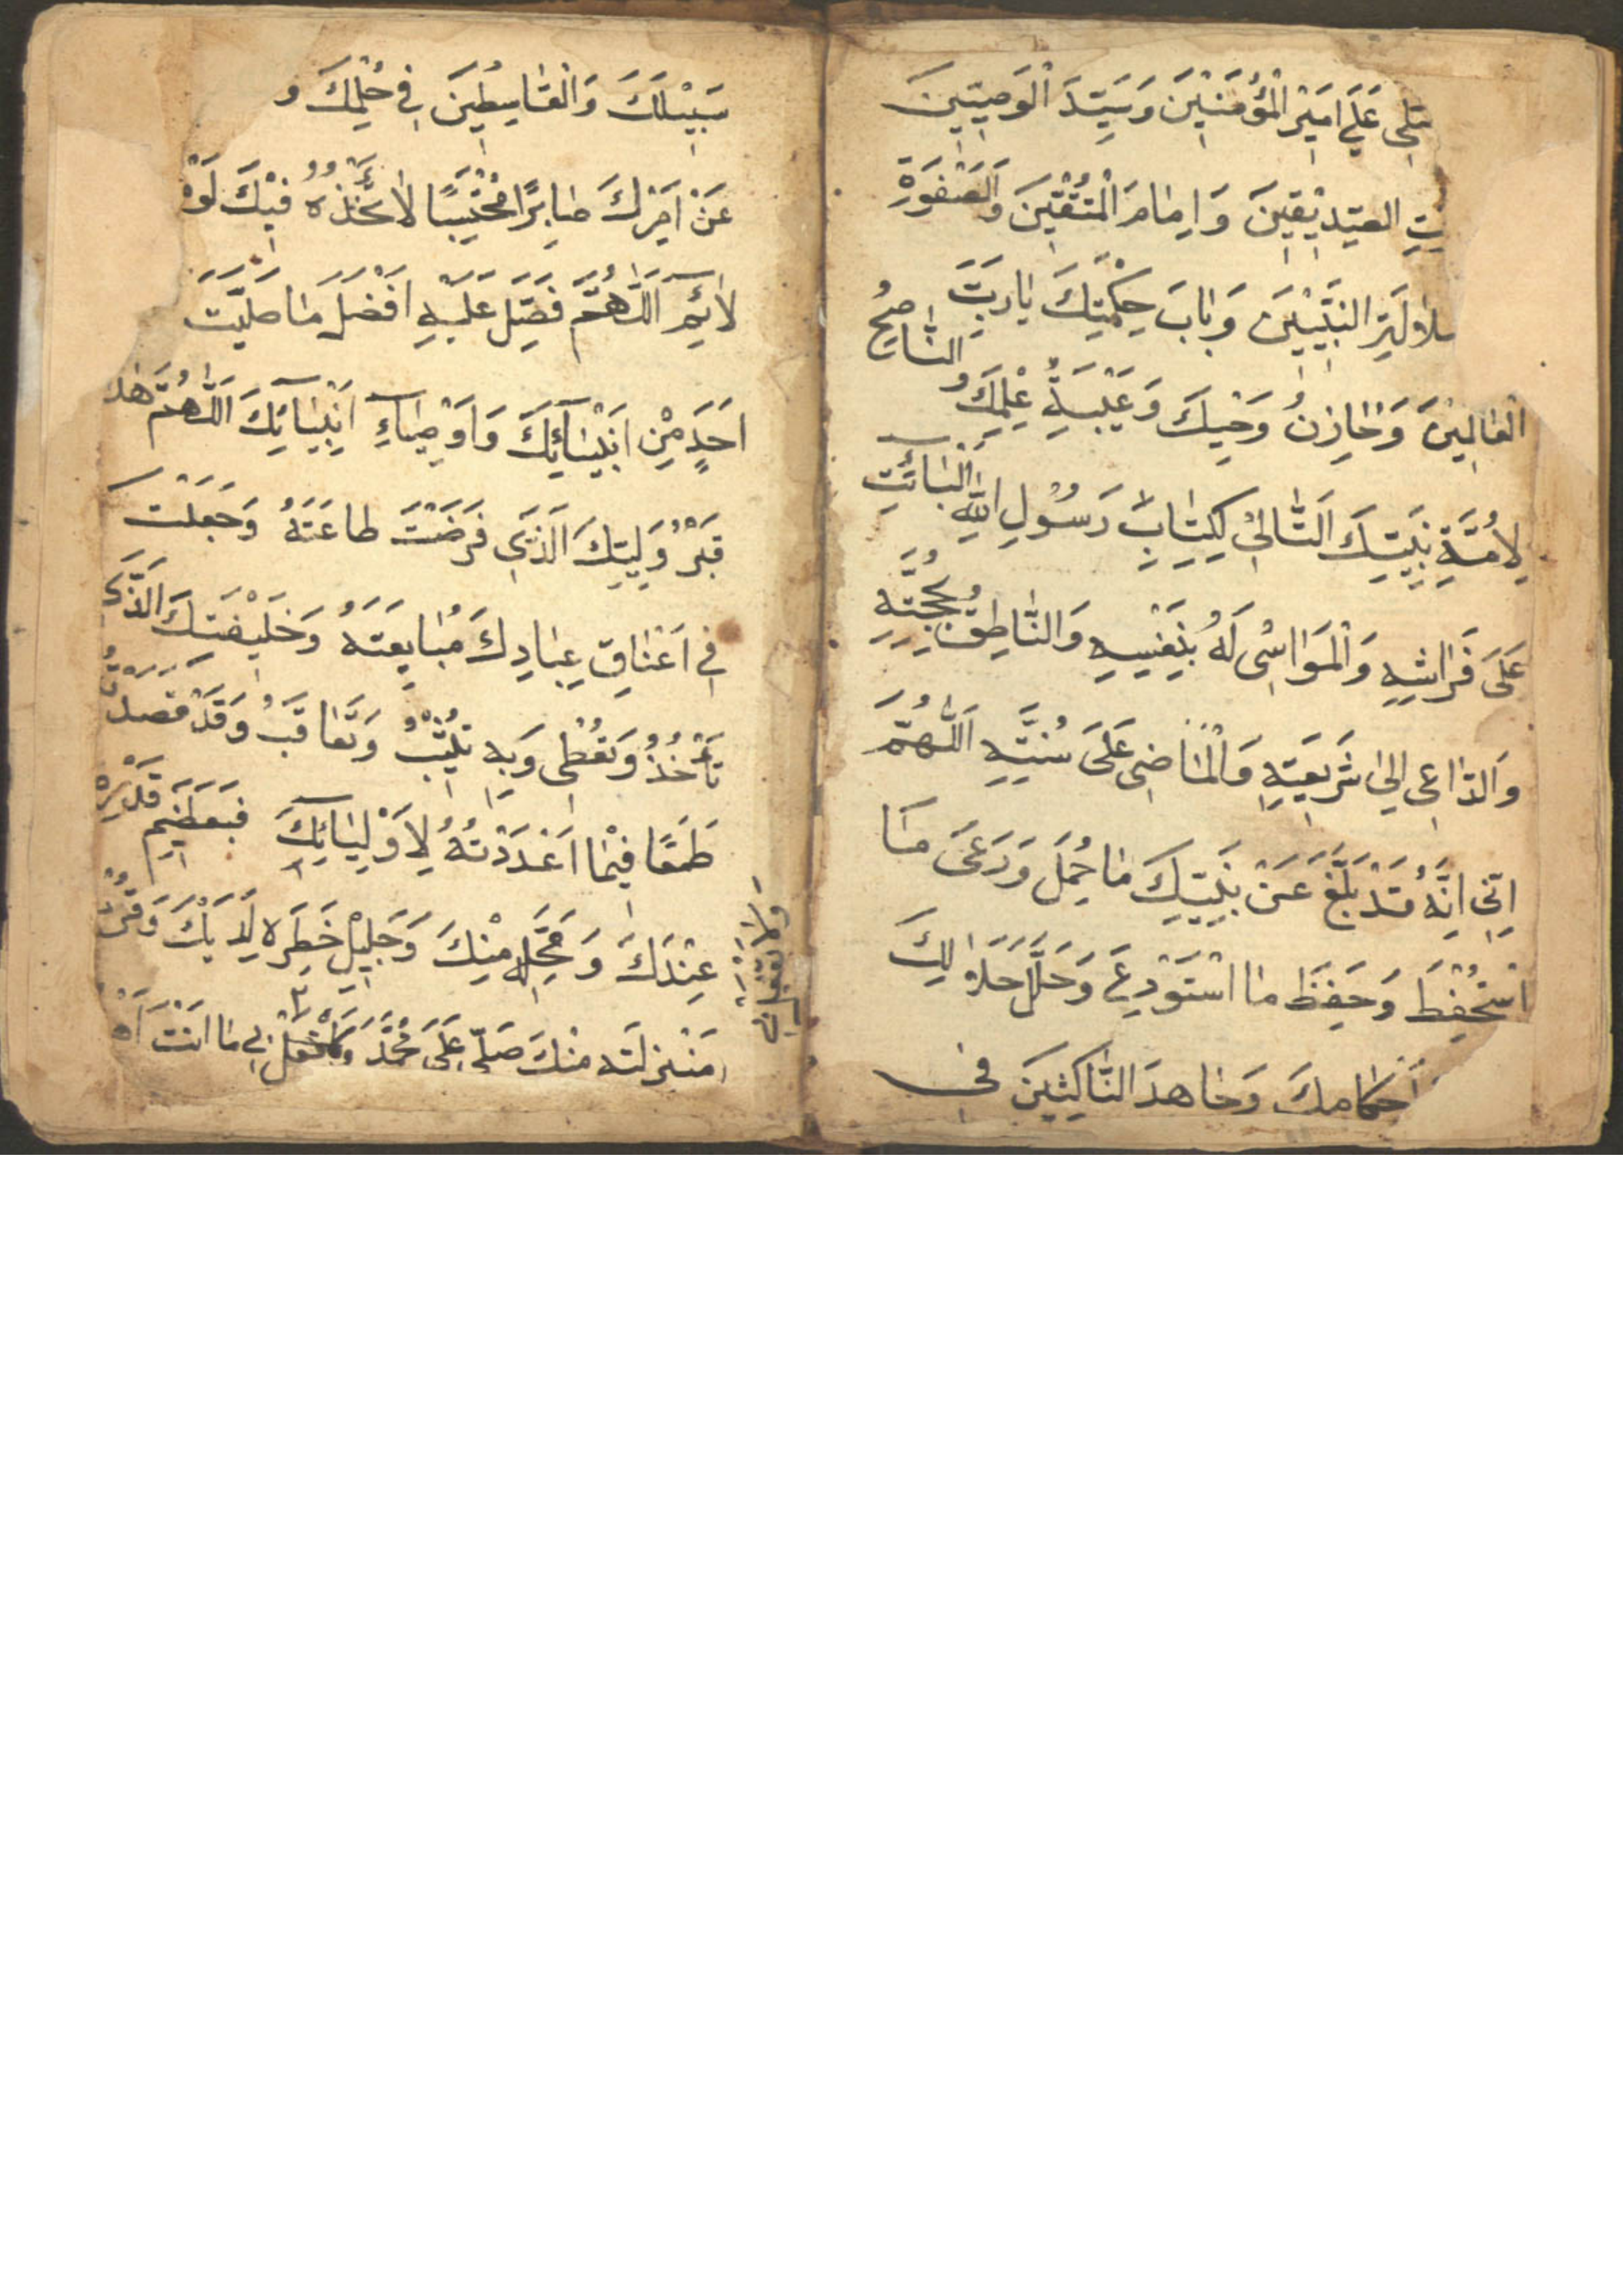 صَلِّى عَلَى اَمِيْرِ الْمُؤْمِنِيْنَ وَسَيِّدَ الْوَصِيِّينَ
الصِّدِيْقِينَ وَاِمَامَ الْمُتَّقِيْنَ وَالصَّفْوَةِ
سُلاَلَةِ النَّبِيِّيْنَ وَبَابَ حِكْمَتِكَ يَارَبَّ
الْعَالَمِيْنَ وَخَازِنُ وَحْيِكَ وَعَيْبَةُ عِلْمِكَ وَالنَّاصِحُ
لِاُمَّةِ نَبِيِّكَ اَلتَّالِىْ لِكِتَابِ رَسُوْلِ اللّٰهِ اَلْبَائِتِ
عَلَى فَرَاشِهِ وَالْمَوَااسْى لَهُ بِنَفْسِهِ وَالنَّاطِقُ بِحُجَّتِهِ
وَالدَّاعِى اِلَى شَرِيعَتِهِ وَالْمَاضِى عَلَى سُنَّتِهِ اَللّٰهُمَّ
اِنِّى اِنَّهُ قَدْ بَلَّغَ عَنْ نَبِيِّكَ مَا حُمِلَ وَرَعَىَ مَا
اسْتُحْفِظَ وَحَفِظَ مَا اسْتَوْدِعَ وَحَلَّلَ حَلَالِكَ
اَحْكَامِكَ وَجَاهدَ النَّاكِثِينَ فى
سَبِيْلَكَ وَالْقَاسِطِينَ فِى حُكْمِكَ وَ
عَنْ اَمْرِكَ صَابِرًا مُحْتَسِبًا لَا تَأْخُذُهُ فِيْكَ لَوْمَةُ
لَائِمٍ اَللّٰهُمَّ فَصَلِّ عَلَيْهِ اَفْضَلَ مَا صَلَّيْتَ
اَحَدٍ مِنْ اَنْبِيَآئِكَ وَاَوْصِيَاءِ اَنْبِيَآئِكَ اَللّٰهُمَّ هذ
قَبْرُ وَلِيِّكَ اَلَّذِى فَرَضْتَ طَاعَتَهُ وَجَعَلْتَ
فِى اَعْنَاقِ عِبَادِكَ مُبَايَعَتَهُ وَخَلِيْفَتِكَ الَّذِى
تَأْخُذُ وَتُعْطِى وَبِهِ تُثِيْبُ وَتُعَاقَبُ وَقَدْ قَصَدْتُ
طَمَعًا فِيْمَا اَعْدَدْتَهُ لِاَوْلِيَآئِكَ فَبَعَظِيْمِ قَدْرِهِ
عِنْدَكَ وَمَحَلِّهِ مِنْكَ وَجَلِيْلِ خَطَرِهِ لَدَيْكَ وَقُرْبِ
مَنْزِلَتِهِ مِنْكَ صَلِّ عَلَى مُحَمَّدَ وَافْعَلْ بِى مَا اَنْتَ اَهْ